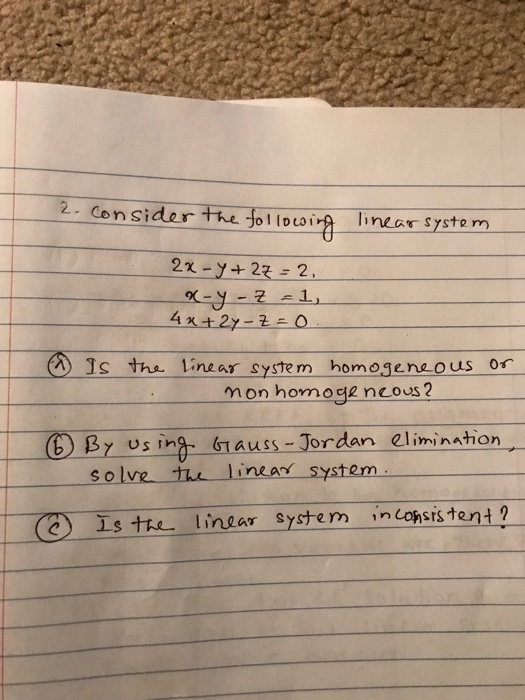 2. Consider the following linear system
2x - y + 2z = 2,
x - y - z = 1,
4x + 2y - z = 0.
(a) Is the linear system homogeneous or
nonhomogeneous?
(b) By using Gauss-Jordan elimination,
solve the linear system.
(c) Is the linear system inconsistent?